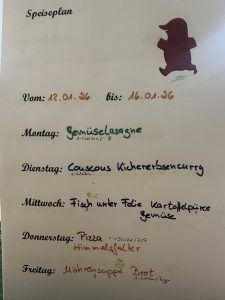 Speiseplan
Vom: 12.01.26 bis: 16.01.26
Montag: Gemüselasagne
Dienstag: Couscous Kichererbsencurry
Mittwoch: Fisch unter Folie Kartoffelpüree
Gemüse
Donnerstag: Pizza
Himmelsfalter
Freitag: Möhrensuppe Brot